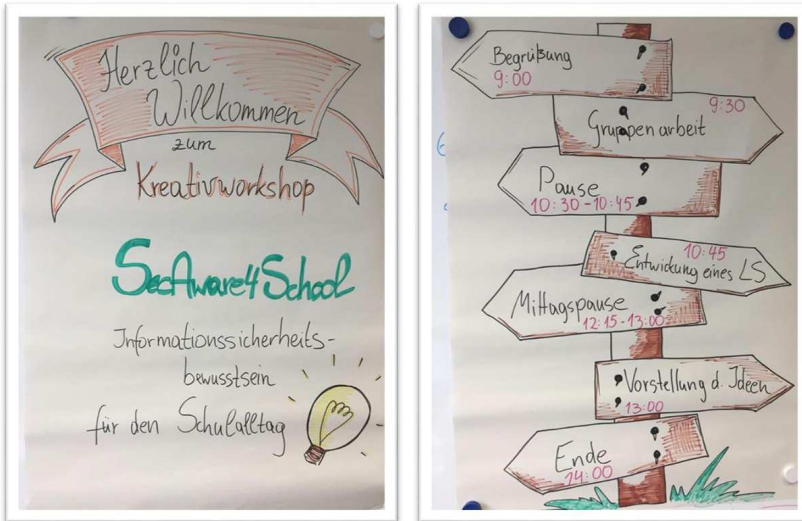 Herzlich
Willkommen
zum
Kreativworkshop
SecAware4School
Informationssicherheits-
bewusstsein
für den Schulalltag
Begrüßung
9:00
9:30
Gruppenarbeit
Pause
10:30-10:45
10:45
Entwicklung eines LS
Mittagspause
12:15-13:00
Vorstellung d. Ideen
13:00
Ende
14:00